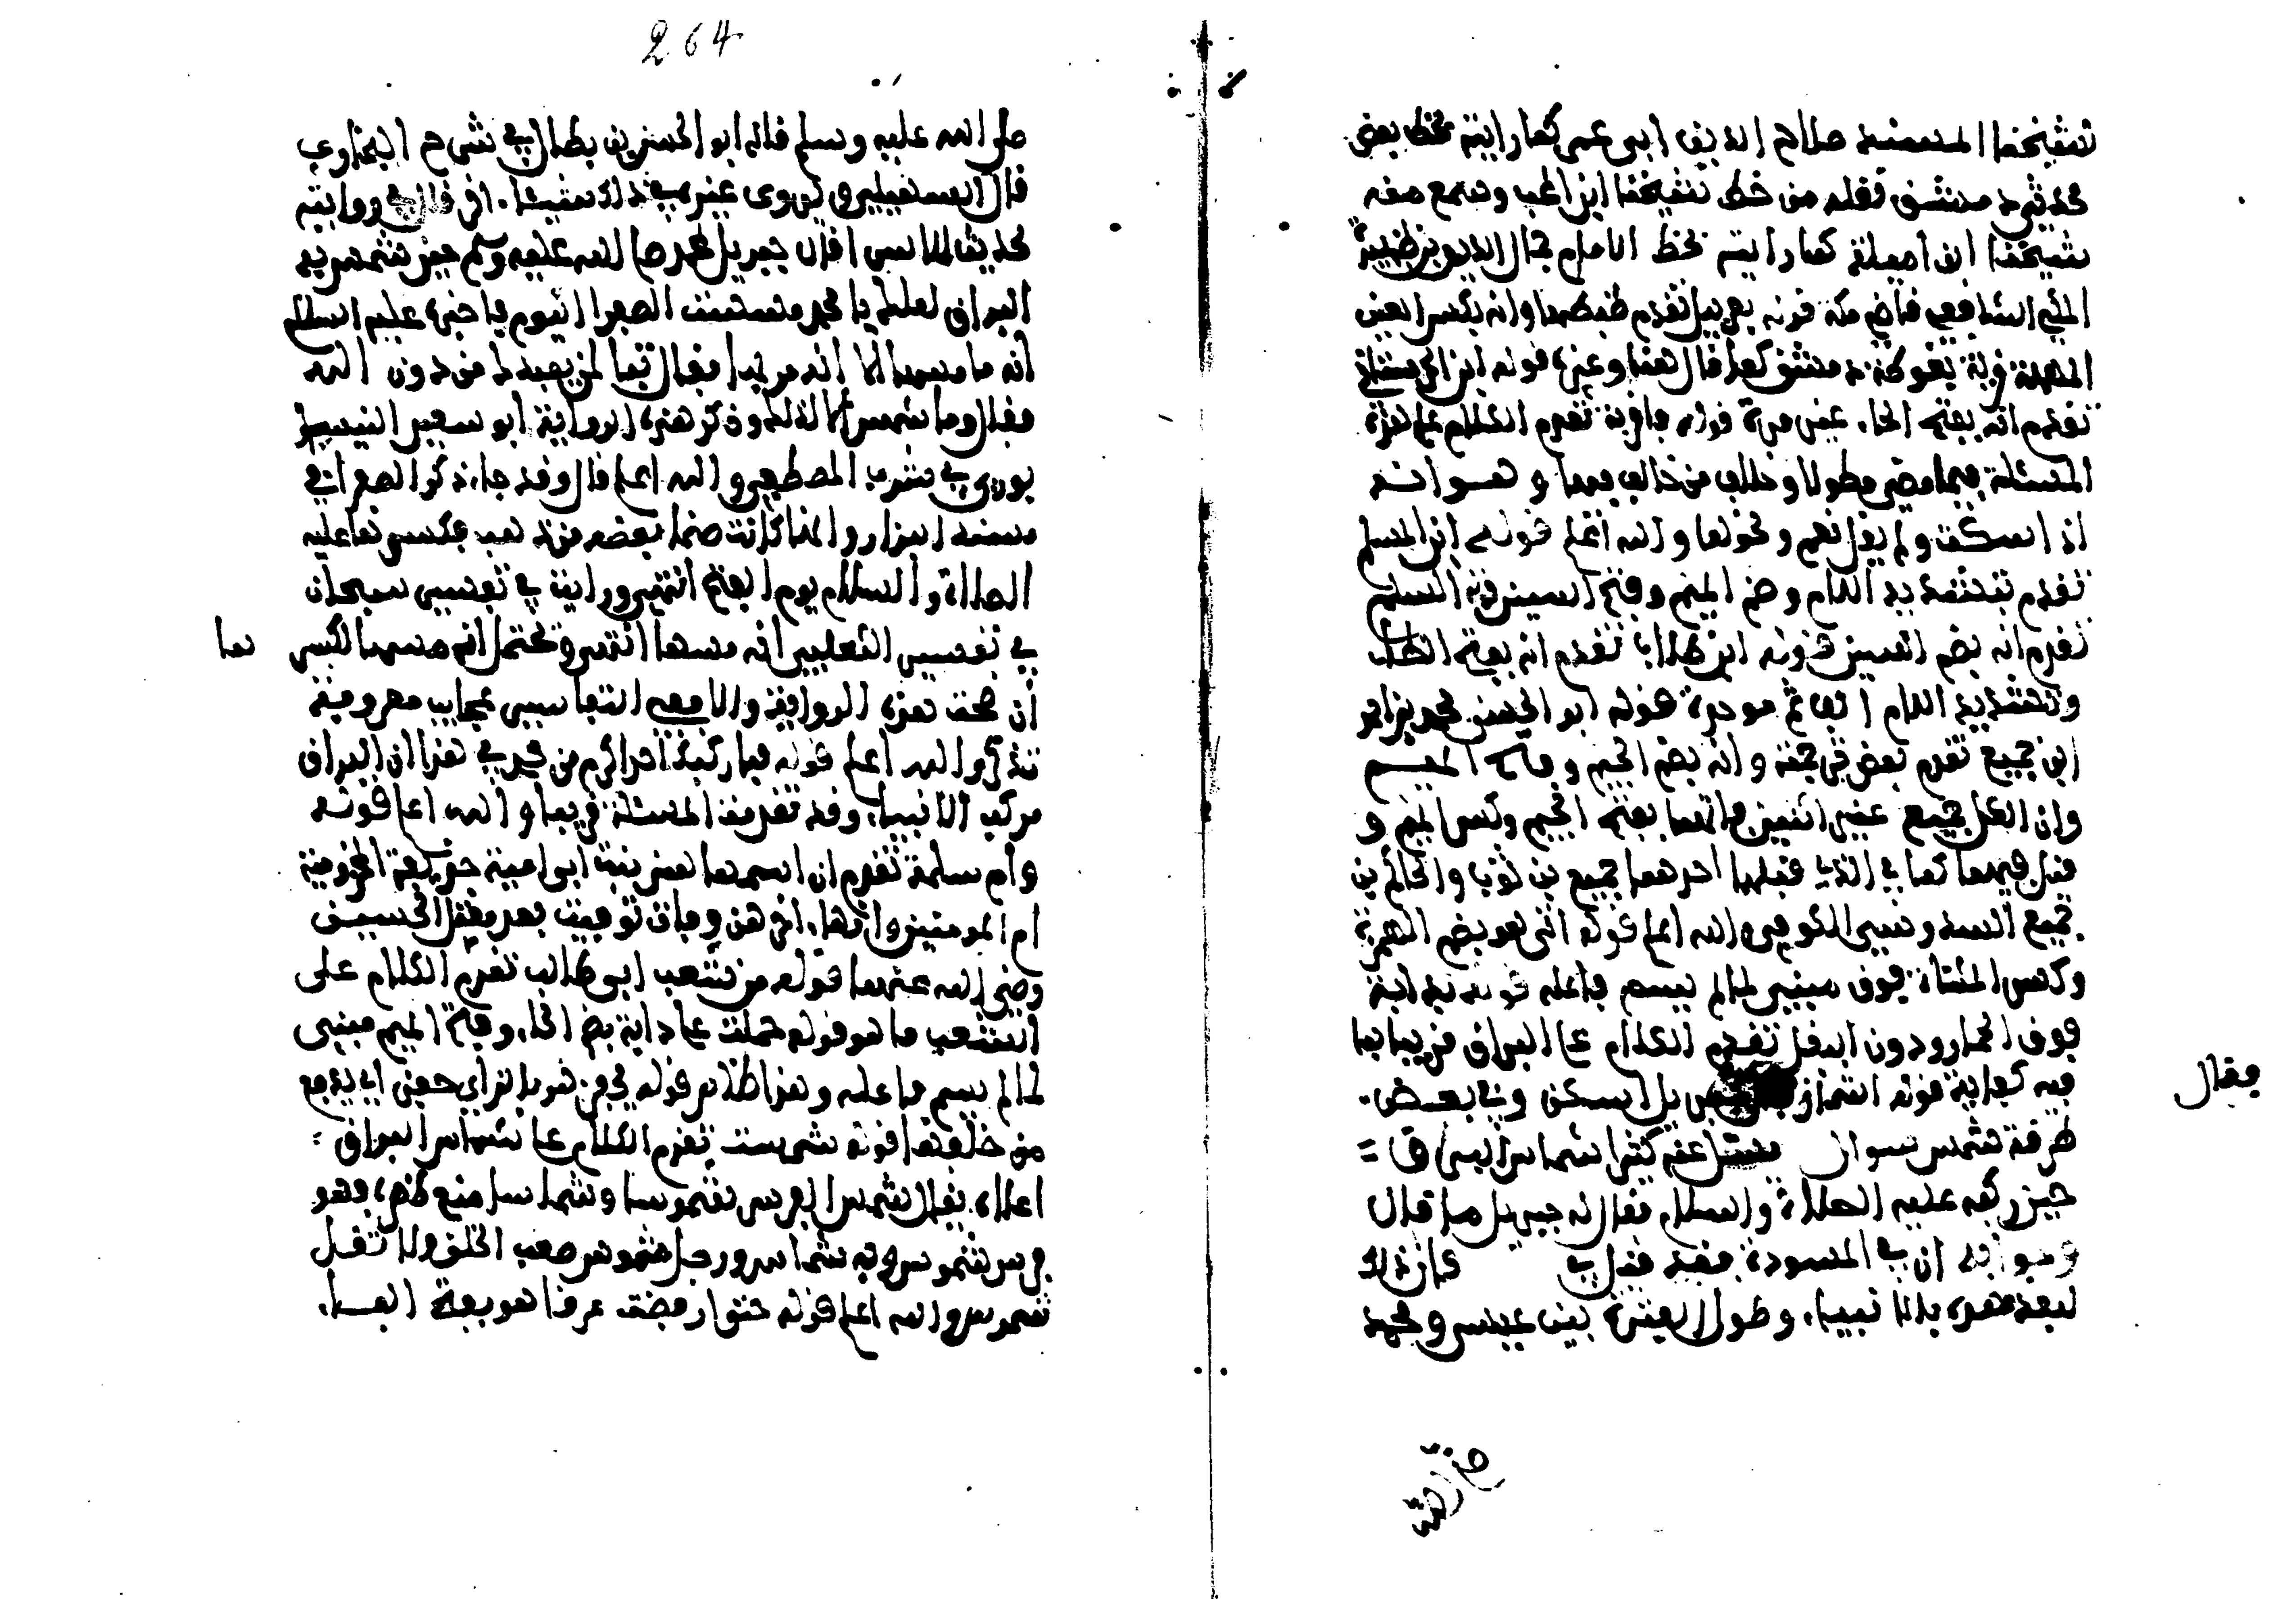 شيخنا المسند صلاح الدين ابي عمر كما رايته بخط بعض
محدثي دمشق نقله من خط شيخنا ابن المحب وسمع منه
شيخنا ابن اميلة كما رايته بخط الامام جمال الدين بن ظهيرة
المكي الشافعي قاضي مكة قوله بعربيل تقدم ضبطها وانه بكسر العين
المهملة قرية بغوطة دمشق كما قال هنا وغيره قوله ابن الحرستاني
تقدم انه بفتح الحاء غير مرة قوله تقدم الكلام على هذه
المسئلة فيما مضى مطولا وخلاف من خالف فيها وهو انه
اذا سكت ولم يقل نعم ونحوها والله اعلم قوله ابن المسلم
تقدم بتشديد اللام وضم الميم وفتح السين قوله السلمي
تقدم انه بضم السين قوله ابن طلاب تقدم انه بفتح الطاء
وتشديد اللام وفي اخره موحدة قوله ابو الحسن محمد بن احمد
ابن جميع تقدم بعض ترجمته وانه بضم الجيم وفتح الميم
وان الكل جميع غير اثنين فانهما بفتح الجيم وكسر الميم و
قيل فيهما كما في الذي قبلهما احدهما جميع بن ثوب والحكم بن
جميع السدوسي الكوفي والله اعلم قوله اتي هو بضم الهمزة
وكسر المثناة فوق مبني لما لم يسم فاعله قوله بدابة
فوق الحمار ودون البغل تقدم الكلام على البراق قريبا بما
فيه كفاية قوله اشماز جبريل اسكن وفي بعض
طرقه شمس سوال يسئل عنه كثيرا شماس البراق =
حين ركبه عليه الصلاة والسلام فقال له جبريل ما قال
وجوابه ان في المسودة فقد قيل كان ذلك
لبعد عهده بالانبياء وطول الفترة بين عيسى ومحمد
فقال
264
صلى الله عليه وسلم قاله ابو الحسن بن بطال في شرح البخاري
قال السهيلي وروى غيره في ذلك سببا اخر قال في روايته
لحديث الاسرى قال جبريل لمحمد صلى الله عليه وسلم حين شمس به
البراق لعلك يا محمد مسست الصفرا اليوم فاخبره عليه السلام
انه ما مسها الا انه مر بها فقال تبا لمن يعبدك من دون الله
فقال وما شمس الا لذلك وذكر هذه الرواية ابو سعيد النيسا
بوري في شرف المصطفى والله اعلم قال وقد جاء ذكر الصفرا في
مسند البزار وانها كانت صنما بعضه من ذهب فكسرها عليه
الصلاة والسلام يوم الفتح انتهى ورايت في تفسير سبحان
في تفسير الثعلبي انه مسها انتهى ويحتمل انه مسها لكسرها
ان صحت هذه الرواية والا ففي التفاسير عجايب معروفة
تنكر والله اعلم قوله فما ركبك احد اكرم من محمد في هذا ان البراق
مركب الانبياء وقد تقدمت المسئلة قريبا والله اعلم قوله
وام سلمة تقدم ان اسمها هند بنت ابي امية حذيفة المخزومية
ام المومنين وانها اخرهن وفاة توفيت بعد مقتل الحسين
رضي الله عنهما قوله من شعب ابي طالب تقدم الكلام على
الشعب ما هو قوله حملت على دابة بضم الحاء وكسر الميم مبني
لما لم يسم فاعله وهذا ظاهر قوله يحفز هو بالزاي حفز اي يدفع
من خلفه قوله شمست تقدم الكلام على شماس البراق =
اعلاه يقال شمس الفرس شموسا وشماسا منع ظهره فهو
فرس شموس وبه شماس ورجل شموس صعب الخلق ولا تقل
شموص والله اعلم قوله حتى ارفضت عرقا هو بفتح الفاء